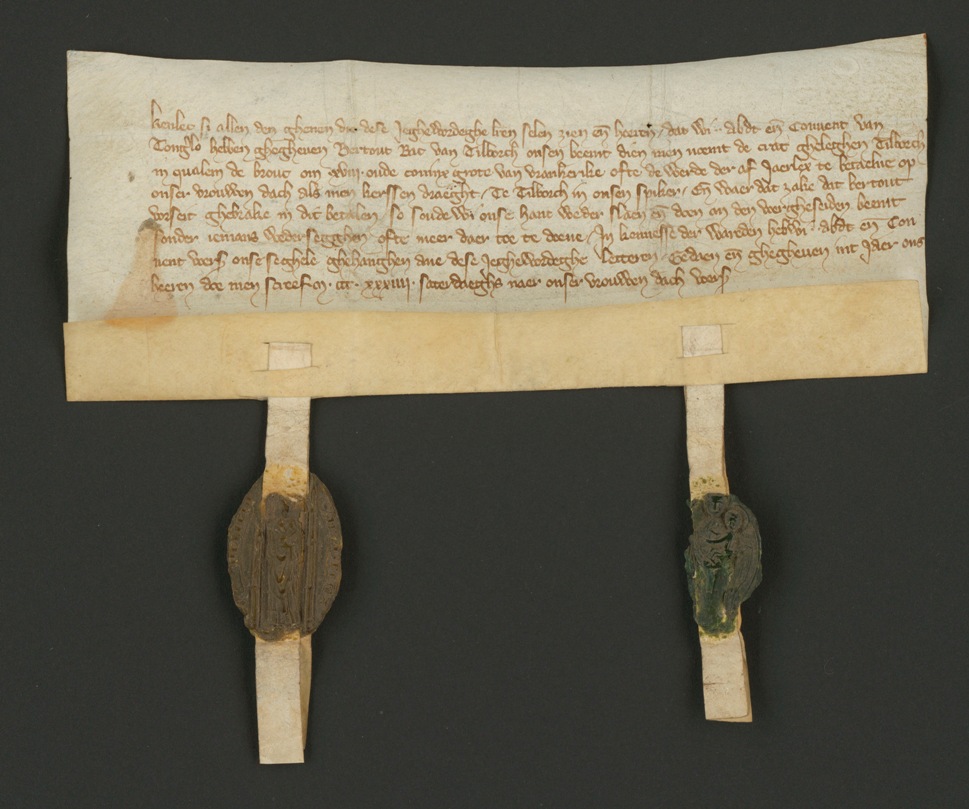 kenlec si allen den ghenen die dese Jeghewordeghe lren selen zien en̄ horen dat wi abdt en̄ Convent van
Tong'lo hebben ghegheven Bertout Bac van Tilborch onsen beemt dien men noemt de crat gheleghen Tilborch
in qualem de brouc om xviii oude coninx grote van vrankerike ofte de werde der af Jaerlex te betaelne op
onser vrouwen dach als men kerssen draeght Te Tilborch in onsen spiker En waer dat zake dat bertout
vorseit ghebrake in dit betalen so soude wi onse hant weder slaen en̄ doen an den vorgheseiden beemt
sonder iemans wedersegghen ofte meer daer toe te doene In kennesse der warden hebwi abdt en̄ Con
vent vors onse seghele ghehanghen ane dese Jeghewordeghe letteren Gedaen en̄ ghegheven int Jaer ons
heren doe men screef m ccc xxxiiii saterdaeghs naer onser vrouwen dach vors